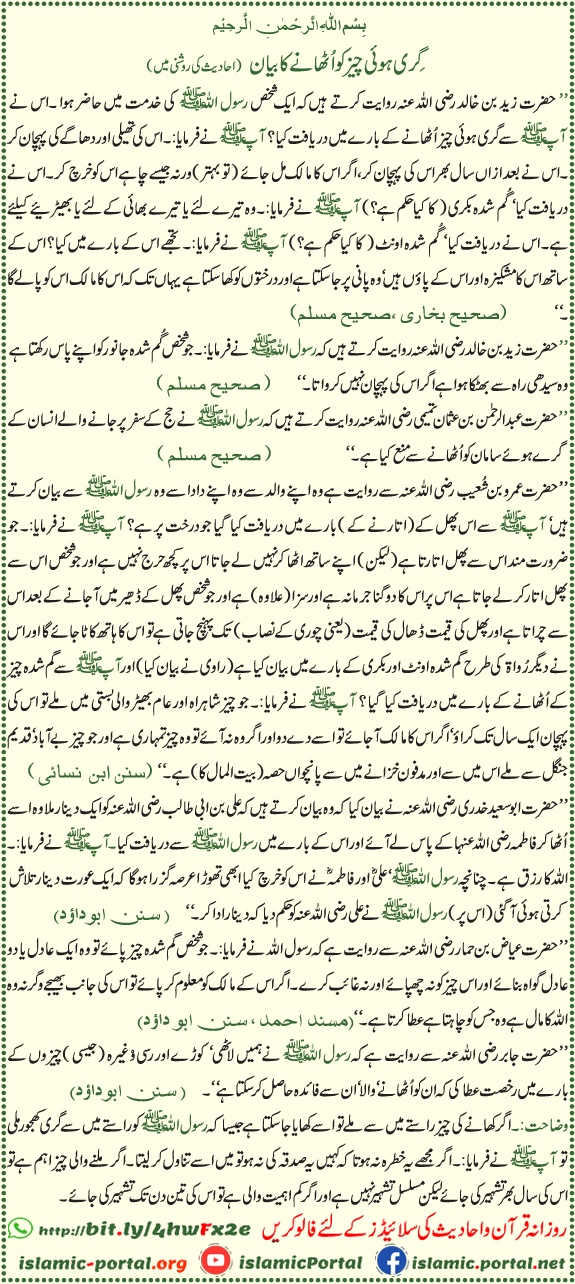 بِسْمِ اللهِ الرَّحْمٰنِ الرَّحِيْمِ
گِری ہوئی چیز کو اُٹھانے کا بیان (احادیث کی روشنی میں)
’’ حضرت زید بن خالد رضی اللہ عنہ روایت کرتے ہیں کہ ایک شخص رسول اللہ ﷺ کی خدمت میں حاضر ہوا ۔ اس نے
آپ ﷺ سے گری ہوئی چیز اُٹھانے کے بارے میں دریافت کیا؟ آپ ﷺ نے فرمایا:۔ اس کی تھیلی اور دھاگے کی پہچان کر
۔ اس نے بعد ازاں سال بھر اس کی پہچان کر، اگر اس کا مالک مل جائے (تو بہتر) ورنہ جیسے چاہے اس کو خرچ کر ۔ اس نے
دریافت کیا‘ گُم شدہ بکری (کا کیا حکم ہے؟) آپ ﷺ نے فرمایا:۔ وہ تیرے لئے یا تیرے بھائی کے لئے یا بھیڑیئے کیلئے
ہے۔ اس نے دریافت کیا‘ گُم شدہ اونٹ (کا کیا حکم ہے؟) آپ ﷺ نے فرمایا:۔ تجھے اس کے بارے میں کیا؟ اس کے
ساتھ اس کا مشکیزہ اور اس کے پاؤں ہیں‘ وہ پانی پر جا سکتا ہے اور درختوں کو کھا سکتا ہے یہاں تک کہ اس کا مالک اس کو پا لے گا
۔‘‘ (صحیح بخاری ،صحیح مسلم)
’’حضرت زید بن خالد رضی اللہ عنہ روایت کرتے ہیں کہ رسول اللہ ﷺ نے فرمایا:۔ جو شخص گُم شدہ جانور کو اپنے پاس رکھتا ہے
وہ سیدھی راہ سے بھٹکا ہوا ہے اگر اس کی پہچان نہیں کرواتا۔‘‘ (صحیح مسلم)
’’حضرت عبدالرحمٰن بن عثمان تیمی رضی اللہ عنہ روایت کرتے ہیں کہ رسول اللہ ﷺ نے حج کے سفر پر جانے والے انسان کے
گرے ہوئے سامان کو اُٹھانے سے منع کیا ہے۔‘‘ (صحیح مسلم)
’’حضرت عمرو بن شُعیب رضی اللہ عنہ سے روایت ہے وہ اپنے والد سے وہ اپنے دادا سے وہ رسول اللہ ﷺ سے بیان کرتے
ہیں‘ آپ ﷺ سے اس پھل کے (اتارنے کے) بارے میں دریافت کیا گیا جو درخت پر ہے؟ آپ ﷺ نے فرمایا:۔ جو
ضرورت مند اس سے پھل اتارتا ہے (لیکن) اپنے ساتھ اٹھا کر نہیں لے جاتا اس پر کچھ حرج نہیں ہے اور جو شخص اس سے
پھل اتار کر لے جاتا ہے اس پر اس کا دوگنا جرمانہ ہے اور سزا (علاوہ) ہے اور جو شخص پھل کے ڈھیر میں آ جانے کے بعد اس
سے چراتا ہے اور پھل کی قیمت ڈھال کی قیمت (یعنی چوری کے نصاب) تک پہنچ جاتی ہے تو اس کا ہاتھ کاٹا جائے گا اور اس
نے دیگر رُواۃ کی طرح گم شدہ اونٹ اور بکری کے بارے میں بیان کیا ہے (راوی نے بیان کیا) اور آپ ﷺ سے گم شدہ چیز
کے اُٹھانے کے بارے میں دریافت کیا گیا؟ آپ ﷺ نے فرمایا:۔ جو چیز شاہراہ اور عام بھیڑ والی بستی میں ملے تو اس کی
پہچان ایک سال تک کراؤ‘ اگر اس کا مالک آ جائے تو اسے دے دو اور اگر وہ نہ آئے تو وہ چیز تمہاری ہے اور جو چیز بے آباد قدیم
جنگل سے ملے اس میں سے اور مدفون خزانے میں سے پانچواں حصہ (بیت المال کا) ہے۔‘‘ (سنن ابن نسائی)
’’حضرت ابوسعید خدری رضی اللہ عنہ نے بیان کیا کہ وہ بیان کرتے ہیں کہ علی بن ابی طالب رضی اللہ عنہ کو ایک دینار ملا وہ اسے
اُٹھا کر فاطمہ رضی اللہ عنہا کے پاس لے آئے اور اس کے بارے میں رسول اللہ ﷺ سے دریافت کیا۔ آپ ﷺ نے فرمایا:۔
اللہ کا رزق ہے ۔ چنانچہ رسول اللہ ﷺ‘ علیؓ اور فاطمہؓ نے اس کو خرچ کیا ابھی تھوڑا عرصہ گزرا ہوگا کہ ایک عورت دینار تلاش
کرتی ہوئی آ گئی (اس پر) رسول اللہ ﷺ نے علی رضی اللہ عنہ کو حکم دیا کہ دینار ادا کر۔‘‘ (سنن ابوداؤد)
’’حضرت عیاض بن حمار رضی اللہ عنہ سے روایت ہے کہ رسول اللہ نے فرمایا:۔ جو شخص گم شدہ چیز پائے تو وہ ایک عادل یا دو
عادل گواہ بنائے اور اس چیز کو نہ چھپائے اور نہ غائب کرے۔ اگر اس کے مالک کو معلوم کر پائے تو اس کی جانب بھیجے وگرنہ وہ
اللہ کا مال ہے وہ جس کو چاہتا ہے عطا کرتا ہے۔‘‘ (مسند احمد ، سنن ابو داؤد)
’’حضرت جابر رضی اللہ عنہ سے روایت ہے کہ رسول اللہ ﷺ نے ہمیں لاٹھی‘ کوڑے اور رسی وغیرہ (جیسی) چیزوں کے
بارے میں رخصت عطا کی کہ ان کو اُٹھانے‘ والا‘ ان سے فائدہ حاصل کر سکتا ہے‘‘۔ (سنن ابوداؤد)
وضاحت:۔ اگر کھانے کی چیز راستے میں سے ملے تو اسے کھایا جا سکتا ہے جیسا کہ رسول اللہ ﷺ کو راستے میں سے گری کھجور ملی
تو آپ ﷺ نے فرمایا:۔ اگر مجھے یہ خطرہ نہ ہوتا کہ کہیں یہ صدقہ کی نہ ہو تو میں اسے تناول کر لیتا۔ اگر ملنے والی چیز اہم ہے تو
اس کی سال بھر تشہیر کی جائے لیکن مسلسل تشہیر نہیں ہے اور اگر کم اہمیت والی ہے تو اس کی تین دن تک تشہیر کی جائے۔
روزانہ قرآن و احادیث کی سلائیڈز کے لئے فالو کریں http://bit.ly/4hwFx2e
islamic-portal.org islamicPortal islamic.portal.net